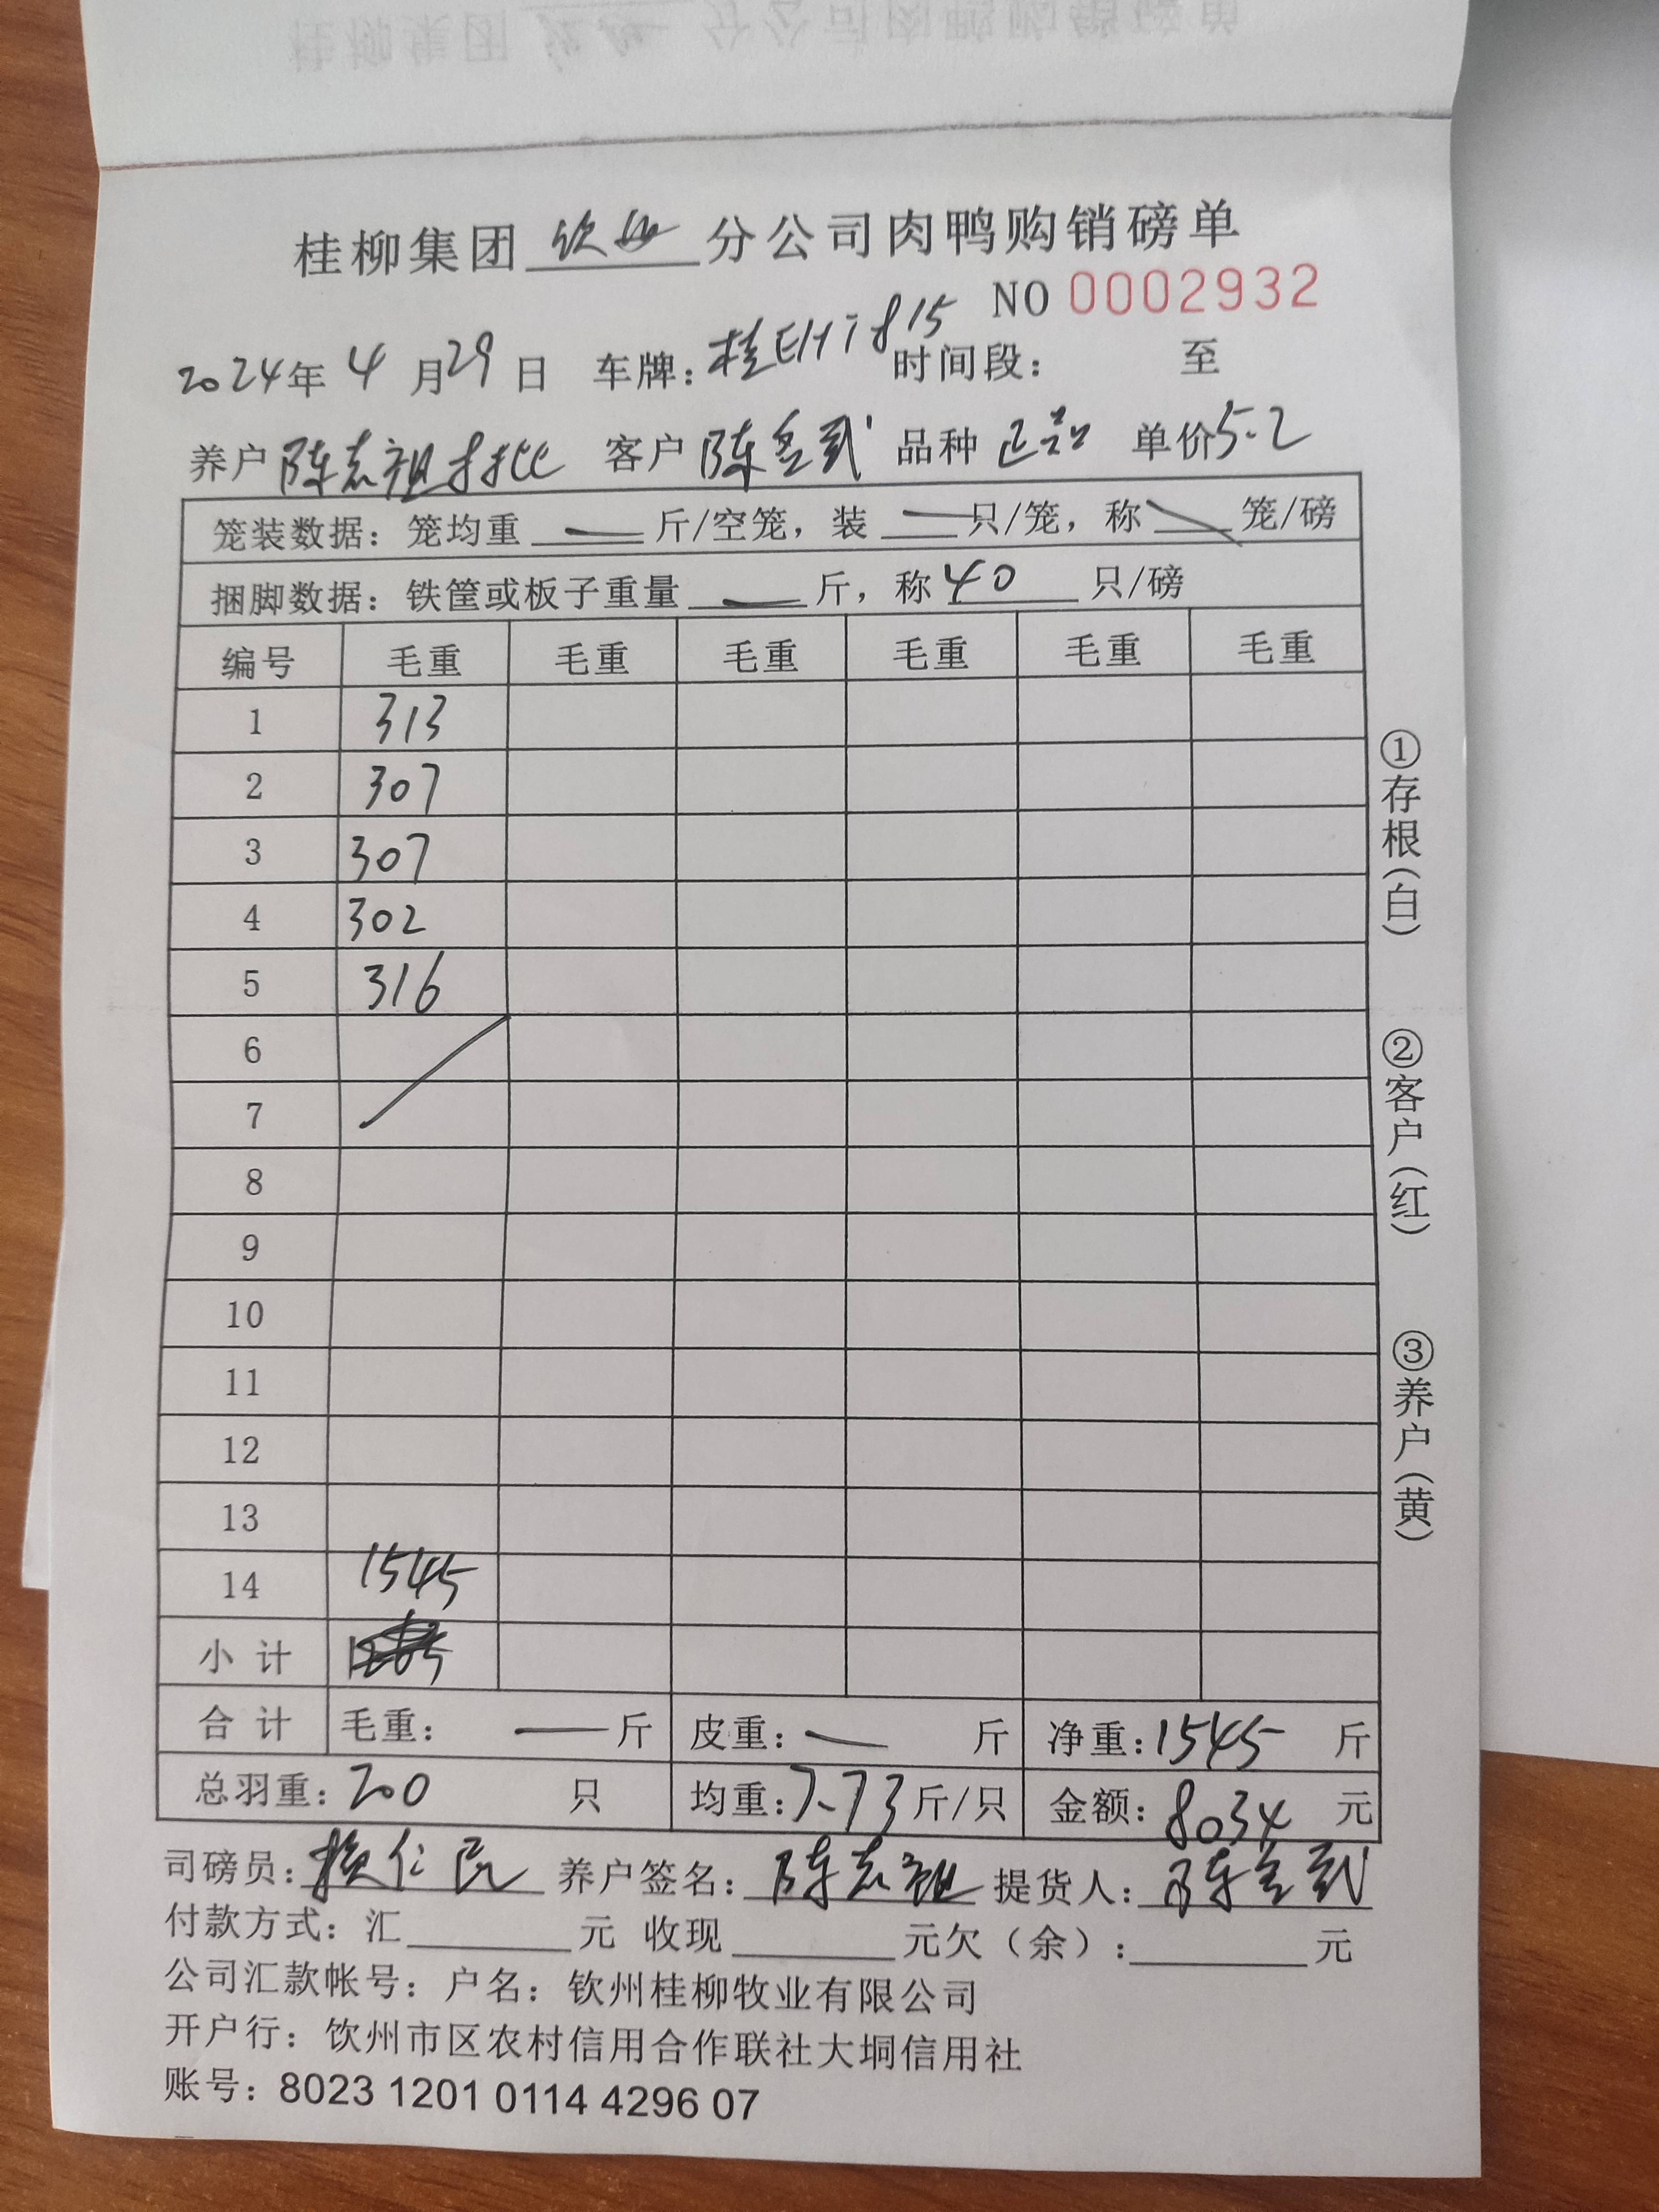 桂柳集团 钦州 分公司肉鸭购销磅单
NO 0002932
2024年 4 月 29 日 车牌: 时间段: 至
养户 陈志祖 客户 陈 品种 正品 单价 5.2
笼装数据: 笼均重 — 斤/空笼, 装 — 只/笼, 称 笼/磅
捆脚数据: 铁筐或板子重量 — 斤, 称 40 只/磅
编号 毛重 毛重 毛重 毛重 毛重 毛重
1 313
2 307
3 307
4 302
5 316
6
7
8
9
10
11
12
13
14 1545
小 计
合 计 毛重: — 斤 皮重: — 斤 净重: 1545 斤
总羽重: 200 只 均重: 7.73 斤/只 金额: 8034 元
司磅员: 养户签名: 陈志祖 提货人: 陈
付款方式: 汇 元 收现 元欠(余): 元
公司汇款帐号: 户名: 钦州桂柳牧业有限公司
开户行: 饮州市区农村信用合作联社大垌信用社
账号: 8023 1201 0114 4296 07
①存根(白)
②客户(红)
③养户(黄)